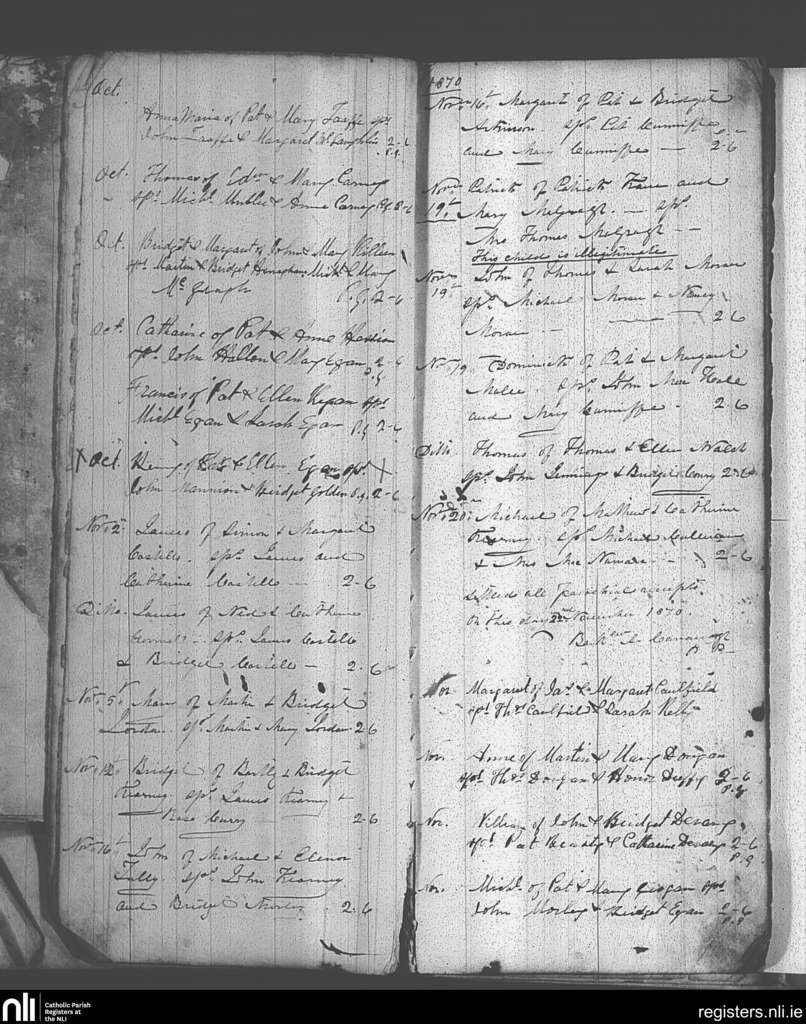 Oct.
Anna Maria of Pat & Mary Taaffe sps
John Taaffe & Margaret McLaughlin 2-6
P.g.
Oct. Thomas of Edwd & Mary Carney
sps Michl & Anne Carney P.g. 2-6
Oct. Bridget & Margaret of John & Mary Killeen
sps Martin & Bridget Heneghan Michl & Mary
Mc P.g. 2-6
Oct. Catharine of Pat & Anne Hession
sps John & Mary Egan 2-6
P.g
Francis of Pat & Ellen Regan sps
Michl Egan & Sarah Egan P.g 2-6
X Oct. of Pat & Ellen Egan sps X
John Mannion & Bridget Golden P.g. 2-6
Nov. 2nd James of Simon & Margaret
Costello. sps James and
Catherine Costello — 2-6
Ditto. James of Ned & Catherine
sps James Costello
& Bridget Costello — 2-6
Nov. 5th Mary of Martin & Bridget
Jordan. sps Martin & Mary Jordan 2-6
Nov. 12th Bridget of Bartly & Bridget
Kearney sps James Kearney &
Rose Curry — 2-6
Nov. 16th John of Michael & Elenor
Tully. sps John Kearney
and Bridget 2-6
1870
Nov. 16th Margaret of Pat & Bridget
Atkinson. sps Pat Cunniffe
and Mary Cunniffe — 2-6
Nov. Patrick of Patrick and
19th Mary — sps
Mrs Thomas — —
This child is illegitimate
Nov. John of Thomas & Sarah Moran
19th sps Michael Moran & Nancy
Moran — — 2-6
Nov. 19. Dominick of Pat & Margaret
sps John Mac Hale
and Mary Cunniffe - 2-6
Ditto. Thomas of Thomas & Ellen Walsh
sps John Jennings & Bridget Conry 2-6
Nov. 20. Michael of Mathew & Catherine
Kearney. sps Michael
& Mrs Mac Namara - - 2-6
Settled all Parochial receipts
on this day 22nd November 1870.
Barthw A. Cavanagh
P. P.
Nov Margaret of Jas. & Margaret Caulfield
sps Thos Caulfield & Sarah Kelly
Nov. Anne of Martin & Mary Dorgan
sps Thos Dorgan & Honor Duffy 2-6
P.g
Nov. of John & Bridget Devany
sps Pat & Catharine Devany 2-6
P.g
Nov. Michl of Pat & Mary sps
John Morley & Bridget Egan 2-6
P.g
nli
Catholic Parish
Registers at
the NLI
registers.nli.ie